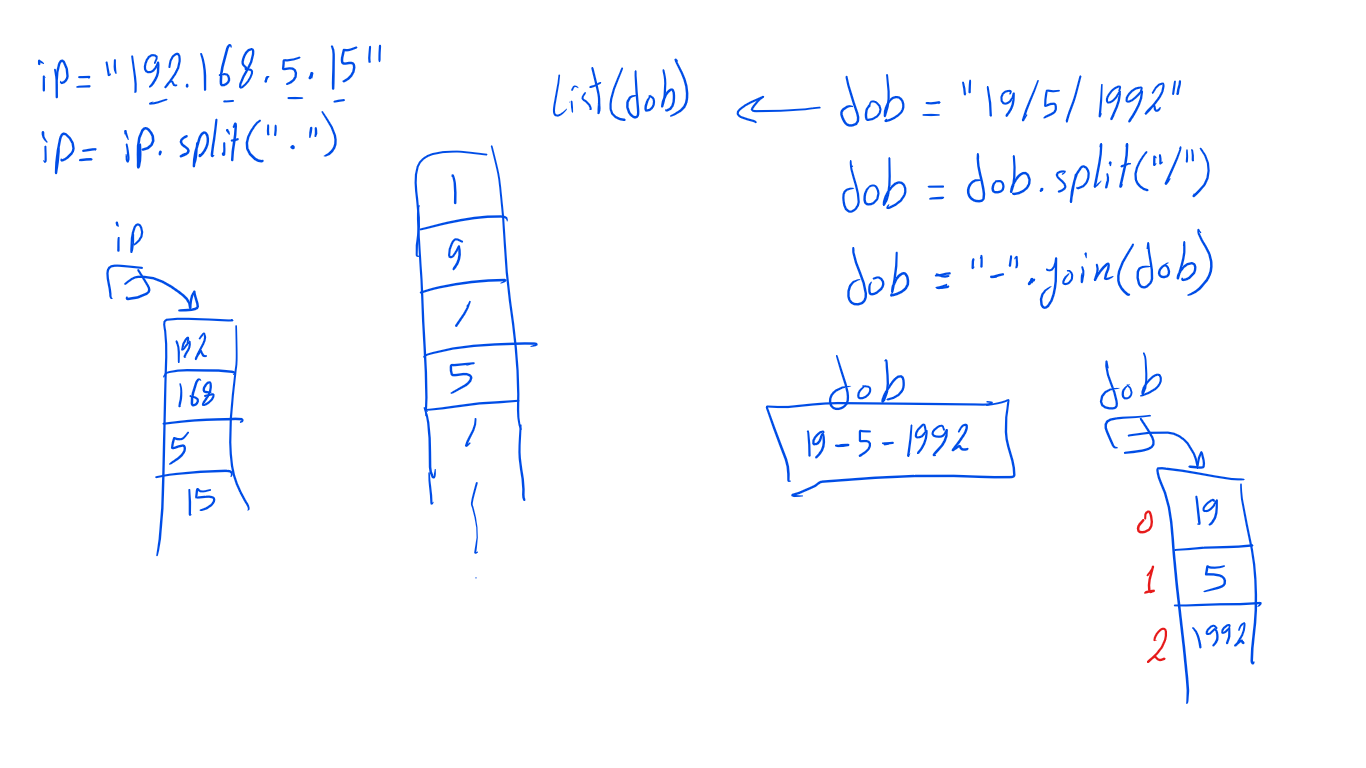 ip= "192.168.5.15"
ip= ip.split(".")
ip
192
168
5
15
list(dob)
1
9
/
5
/
dob = "19/5/1992"
dob = dob.split("/")
dob = "-".join(dob)
dob
19-5-1992
dob
0 19
1 5
2 1992